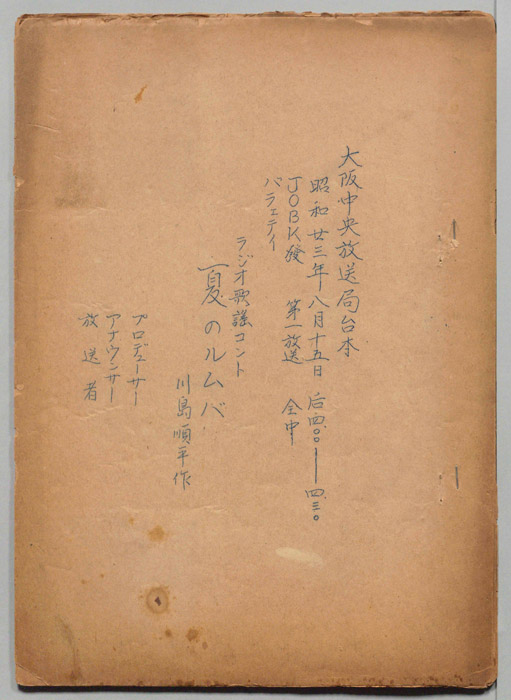 大阪中央放送局台本
昭和廿三年八月十五日 后四.〇〇―四.三〇
JOBK發 第一放送 全中
バラェテイ
ラジオ歌謡コント
夏のルムバ
川島順平作
プロデューサー
アナウンサー
放送者